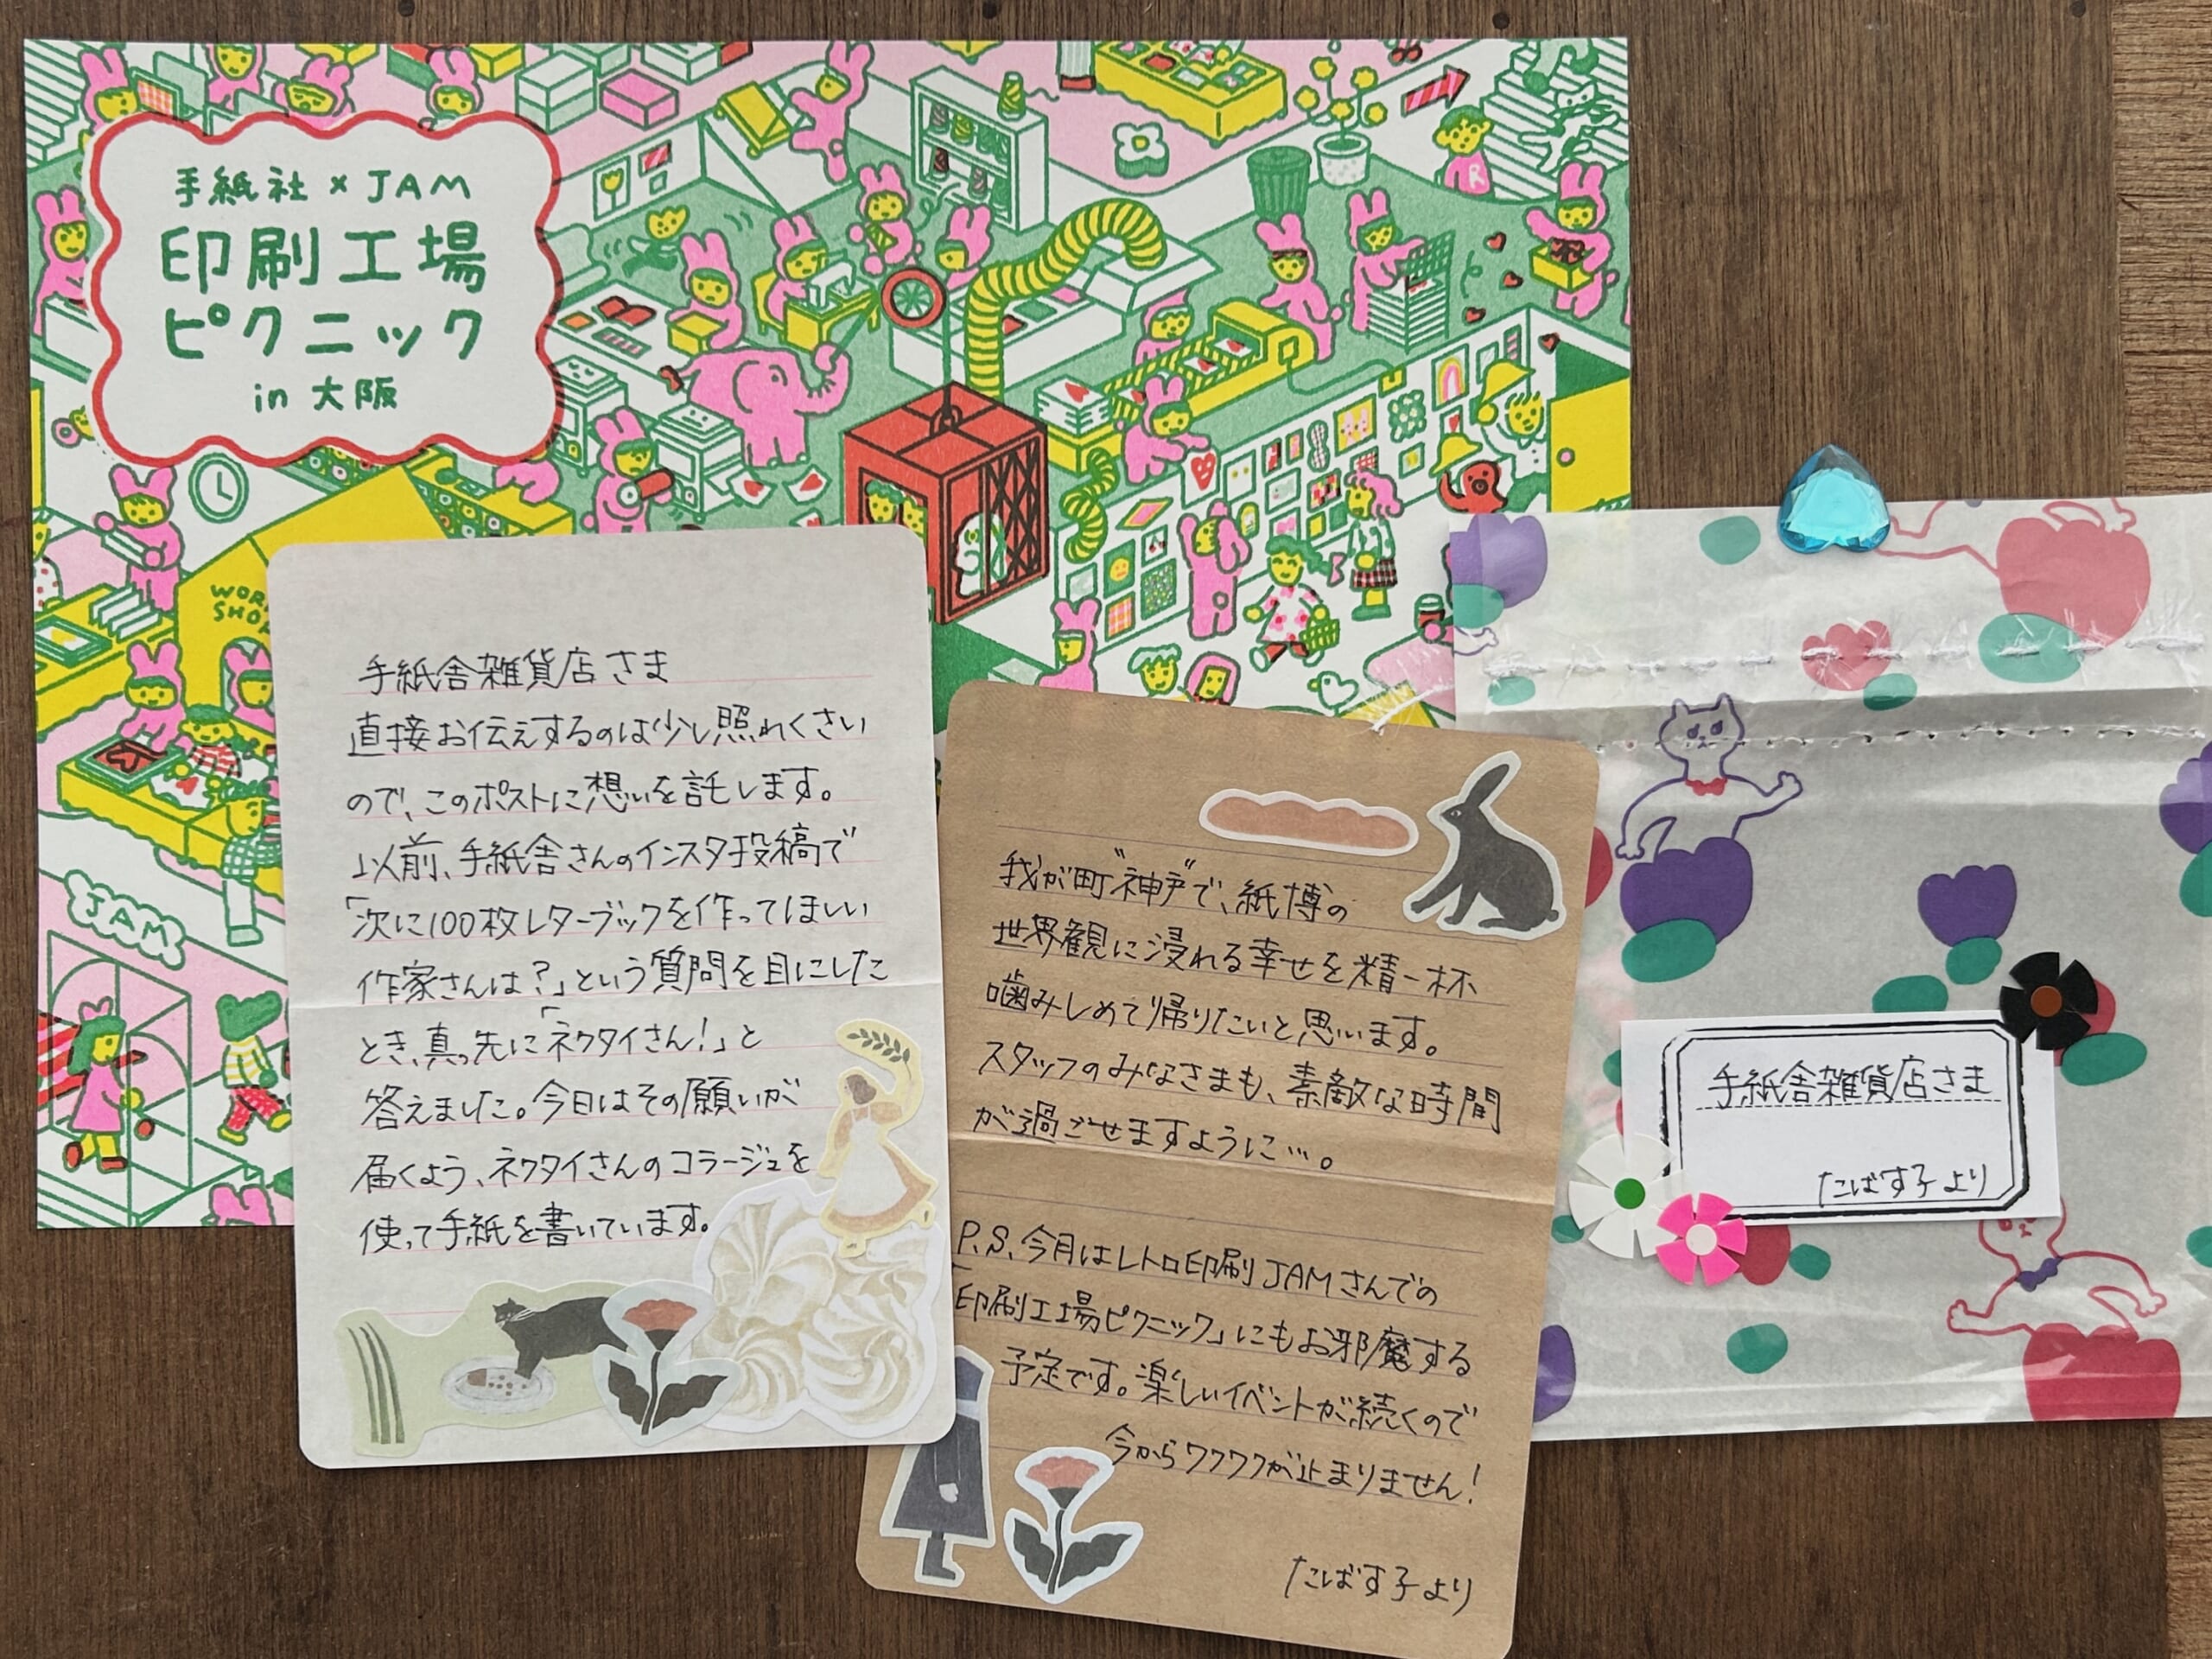 手紙社×JAM
印刷工場
ピクニック
in 大阪
WOR
SHO
JAM
R
手紙舎雑貨店さま
直接お伝えするのは少し照れくさい
ので、このポストに想いを託します。
以前、手紙舎さんのインスタ投稿で
「次に100枚レターブックを作ってほしい
作家さんは?」という質問を目にした
とき、真っ先に「ネクタイさん!」と
答えました。今日はその願いが
届くよう、ネクタイさんのコラージュを
使って手紙を書いています。
我が町"神戸"で、紙博の
世界観に浸れる幸せを精一杯
噛みしめて帰りたいと思います。
スタッフのみなさまも、素敵な時間
が過ごせますように…。
P.S.今月はレトロ印刷JAMさんでの
「印刷工場ピクニック」にもお邪魔する
予定です。楽しいイベントが続くので
今からワクワクが止まりません!
たばす子より
手紙舎雑貨店さま
たばす子より